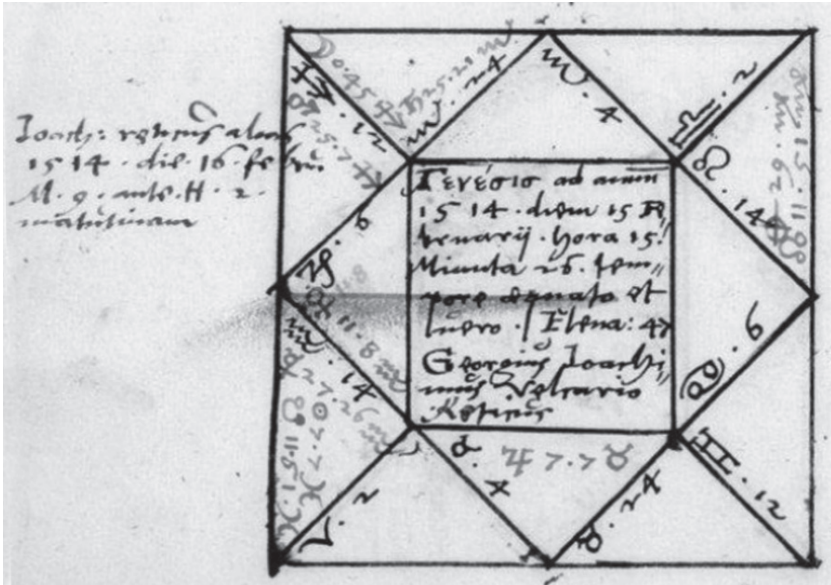 Ioach: reticus alias
1514. die. 16. febru.
M. 9. ante. H. 2.
matutinam
Γενέσισ ad annum
1514. diem 15 Fe
bruarij. hora 15.
Minuta 26. tem„
pore æquato et
uero. | Eleua: 47
Georgius Ioachi„
mus Velcurio
Reticus
☽ 0. 45 ♑
♄ 25. 21 ♏
♐. 12
♂ 25. 7 ♐
♏. 24
♏. 4
♎. 2
♌. 14
♋. 6
♊. 12
♉. 24
♉. 4
♃ 7. 7 ♉
♈. 2
♒. 14
♑. 6
♀ 11. 8 ♒
☿ 27. 26 ♒
☉ 7. 7 ♓
☊ 15. 11 ♓